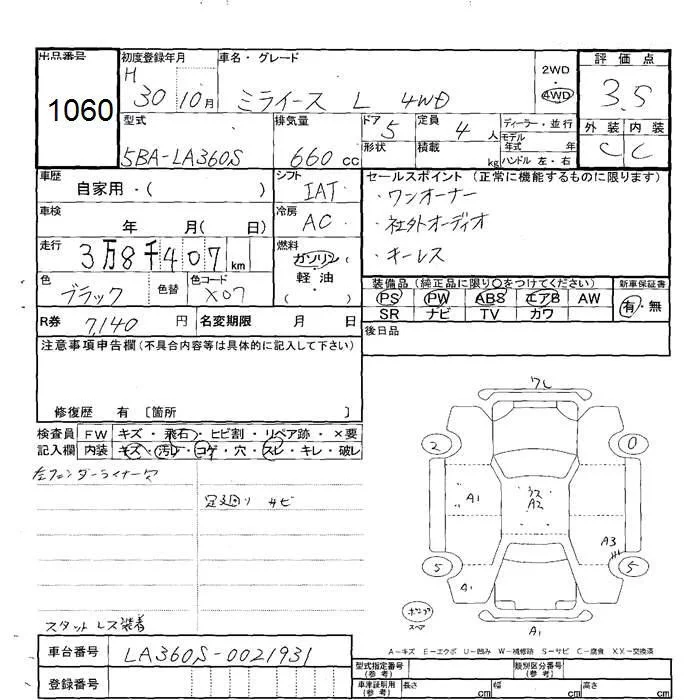 出品番号
1060
初度登録年月
H
30 10月
車名・グレード
ミライース L 4WD
2WD
4WD
評価点
3.5
外装 内装
C C
型式
5BA-LA360S
排気量
660 cc
ドア 5
形状
定員 4 人
積載 kg
ディーラー・並行
モデル
年式 年
ハンドル 左・右
車歴
自家用・( )
シフト
IAT
セールスポイント(正常に機能するものに限ります)
・ワンオーナー
・社外オーディオ
・キーレス
車検
年 月( 日)
冷房
AC
走行
3万8千407 km
燃料
ガソリン
軽油
( )
色
ブラック
色替
色コード
X07
装備品(純正品に限り○をつけてください)
新車保証書
PS PW ABS エアB AW
有・無
SR ナビ TV カワ
R券 7,140 円
名変期限 月 日
後日品
注意事項申告欄(不具合内容等は具体的に記入して下さい)
修復歴 有 〔箇所 〕
検査員
記入欄
FW キズ・飛石・ヒビ割・リペア跡・×要
内装 キズ・汚れ・コゲ・穴・スレ・キレ・破レ
左フェンダーライナーワレ
足廻り サビ
スタットレス装着
ワレ
2
0
A1
ウス
A2
A3
5
5
A1
スペア
A1
A-キズ E-エクボ U-凹み W-補修跡 S-サビ C-腐食 XX-交換済
車台番号
LA360S-0021931
登録番号
型式指定番号
(参考)
類別区分番号
(参考)
車庫証明用
(参考)
長さ cm
幅 cm
高さ cm